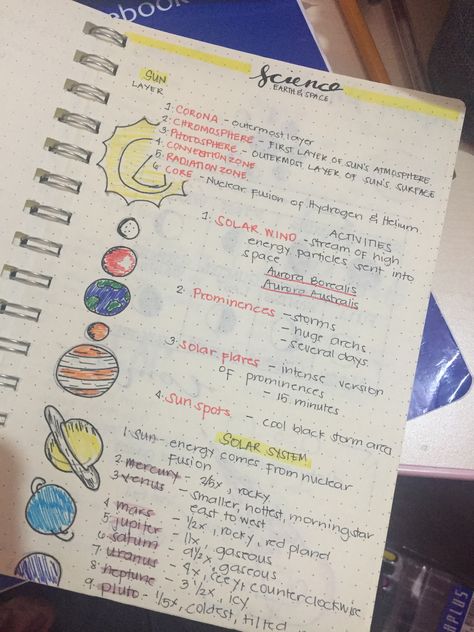 ebook
Science
EARTH & SPACE
SUN
LAYER
1. CORONA - outermost layer
2. CHROMOSPHERE - FIRST LAYER OF SUN'S ATMOSPHERE
3. PHOTOSPHERE - OUTERMOST LAYER OF SUN'S SURFACE
4. CONVECTION ZONE
5. RADIATION ZONE
6. CORE - Nuclear fusion of Hydrogen & Helium
ACTIVITIES
1. SOLAR WIND - stream of high
energy particles sent into
space
Aurora Borealis
Aurora Australis
2. Prominences - storms
- hugs archs
- several days
3. solar flares - intense version
of prominences
- 15 minutes
4. sun spots - cool black storm area
SOLAR SYSTEM
1. sun - energy comes from nuclear
fusion
2. mercury - 2/5x, rocky
3. venus - smaller, hottest, morning star
east to west
4. mars - 1/2x, rocky, red planet
5. jupiter - 11x, gaseous
6. saturn - 9 1/2x, gaseous
7. uranus - 4x, icy, counterclockwise
8. neptune - 3 1/2x, icy
9. pluto - 1/5x, coldest, tilted